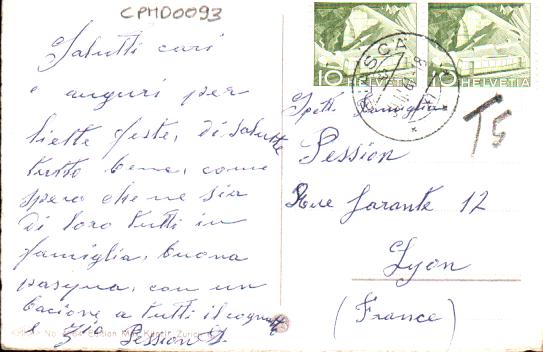 CPMD0093
Salutti cari
e auguri per
liette feste, di salutte
tutto bene, come
spero che ne sia
di loro tutti in
famiglia, buona
pasqua, con un
bacione a tutti il cognatto
e Zio Pession
10 HELVETIA
10 HELVETIA
T5
Spett. Famiglia
Pession
Rue Garante 12
Lyon
(France)